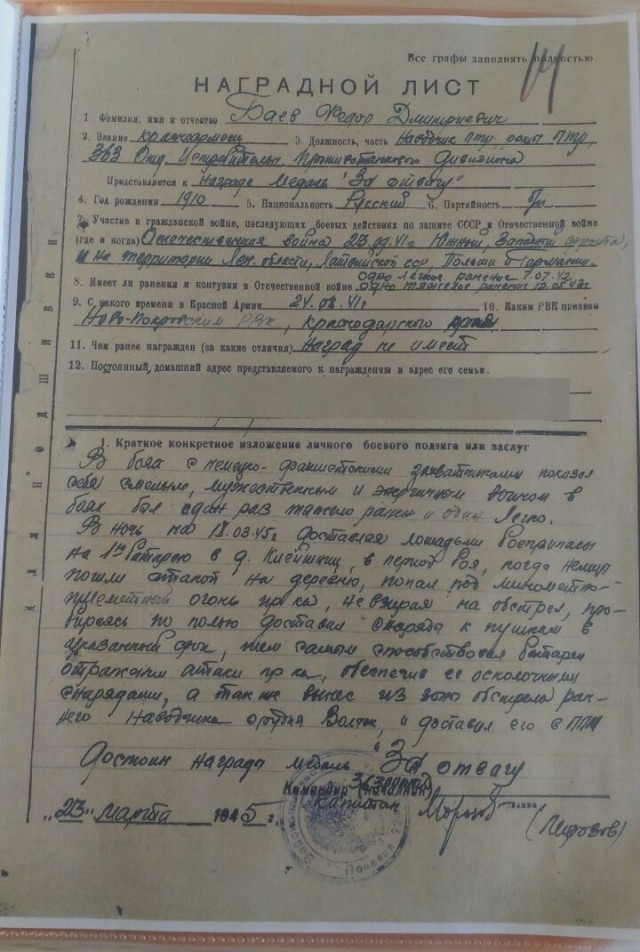 Все графы заполнять полностью
НАГРАДНОЙ ЛИСТ
1 Фамилия, имя и отчество Баев Федор Дмитриевич
2. Звание красноармеец 3. Должность, часть Наводчик ПТР, роты ПТР,
363 Отд. Истребительн. Противотанкового Дивизиона
Представляется к Награде Медаль "За отвагу"
4. Год рождения 1910 5. Национальность Русский 6. Партийность б/п
7. Участие в гражданской войне, последующих боевых действиях по защите СССР и Отечественной войне
(где и когда) Отечественная война Южный, Западный фронта,
и на территории Лен. области, Латвийской сср, Польши и Германии.
8. Имеет ли ранения и контузии в Отечественной войне одно легкое ранение 7.07.42 одно тяжелое ранение
9. С какого времени в Красной Армии 24.08.41г 10. Каким РВК призван
Ново-Покровским РВК, краснодарского края
11. Чем ранее награжден (за какие отличия) Наград не имеет
12. Постоянный, домашний адрес представляемого к награждению и адрес его семьи.
1. Краткое конкретное изложение личного боевого подвига или заслуг
В боях с немецко-фашистскими захватчиками показал
себя смелым, мужественным и энергичным воином в
боях был один раз тяжело ранен и один легко.
В ночь на 18.03.45г доставляя лошадьми боеприпасы
на 1ю батарею в д. в период боя, когда немцы
пошли атакой на деревню, попал под минометно-
пулеметный огонь пр-ка, не взирая на обстрел, про-
бираясь по полю доставил снаряды к пушкам в
указанный срок, чем самым способствовал батареи
отражении атаки пр-ка, обеспечив ее осколочными
снарядами, а так же вынес из зоны обстрела ране-
ного Наводчика орудия и доставил его в ПМП
Достоин Награда медаль "За отвагу
Командир (начальник)
Капитан
"23" марта 1945 г.